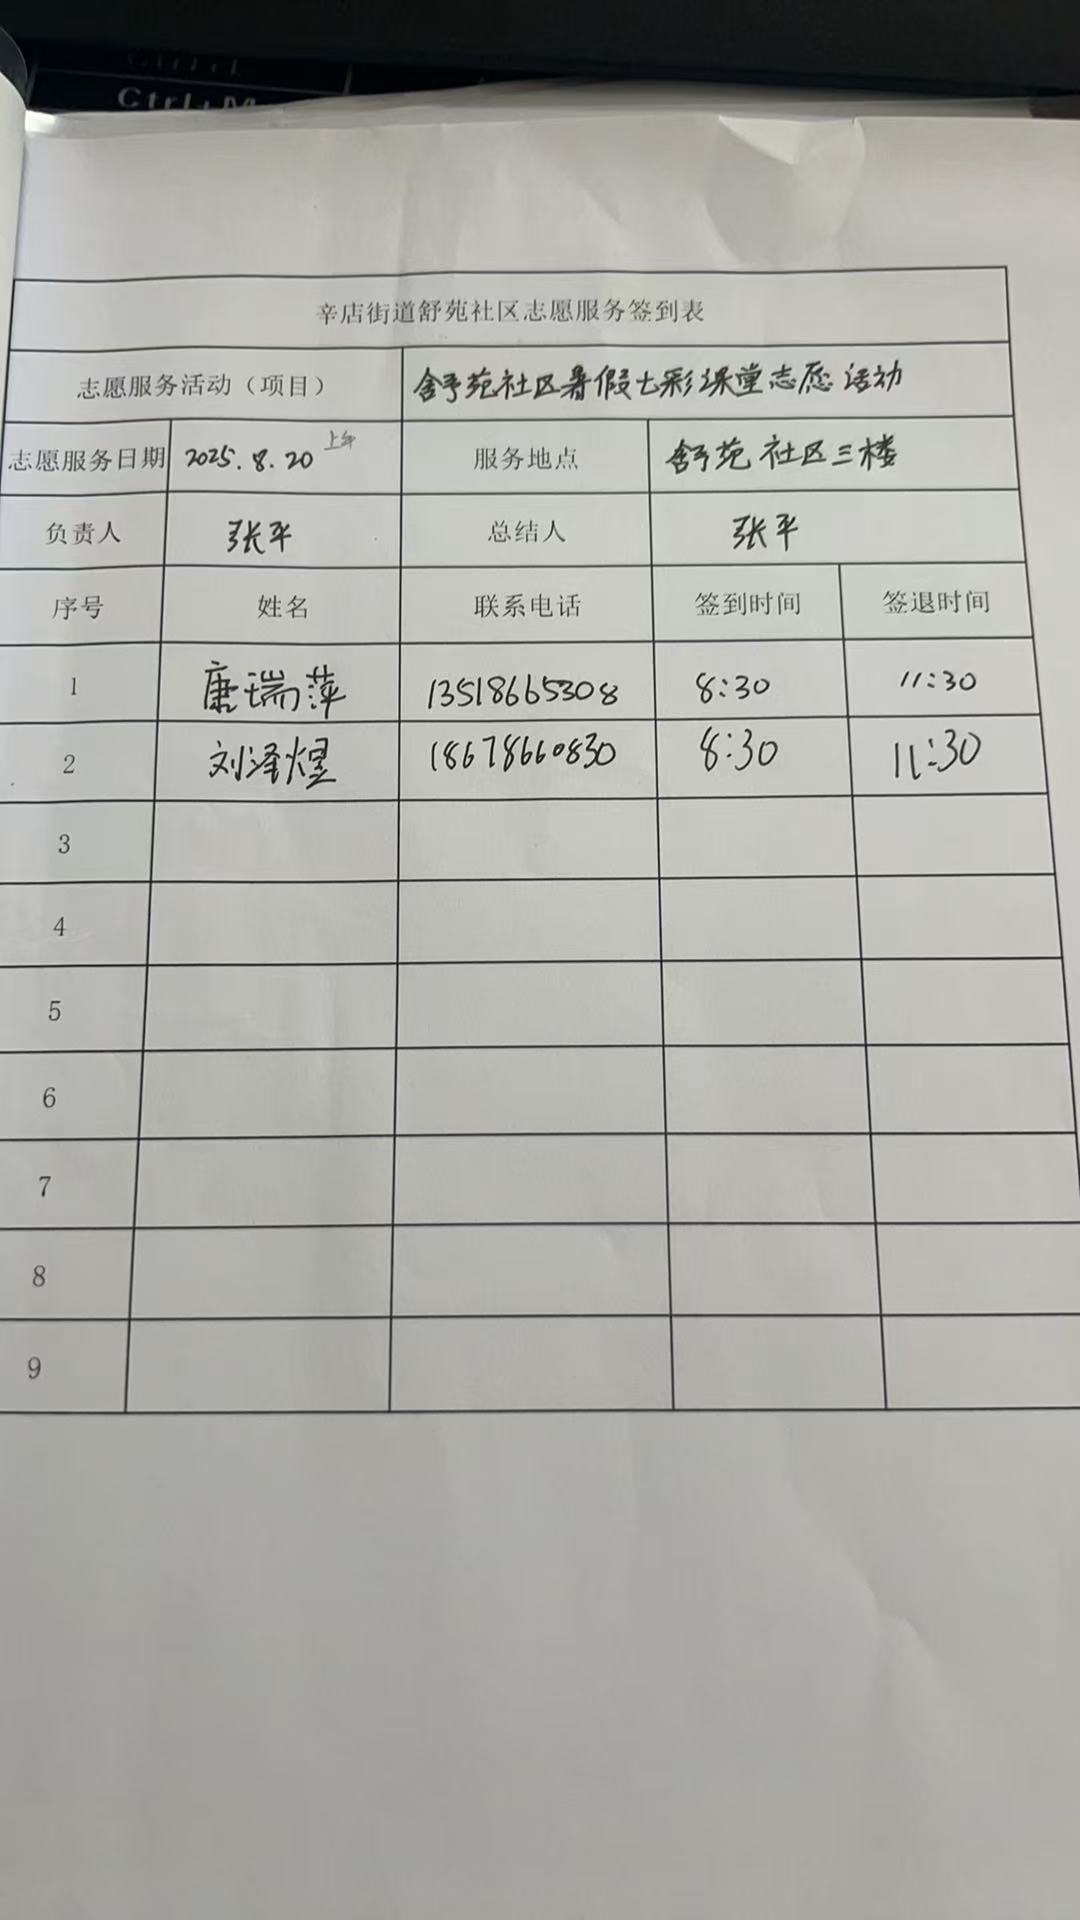 Ctrl+M
辛店街道舒苑社区志愿服务签到表
志愿服务活动（项目） 舒苑社区暑假七彩课堂志愿活动
志愿服务日期 2025.8.20 上午 服务地点 舒苑社区三楼
负责人 张平 总结人 张平
序号 姓名 联系电话 签到时间 签退时间
1 唐瑞萍 13518665308 8:30 11:30
2 刘泽煜 18678660830 8:30 11:30
3
4
5
6
7
8
9